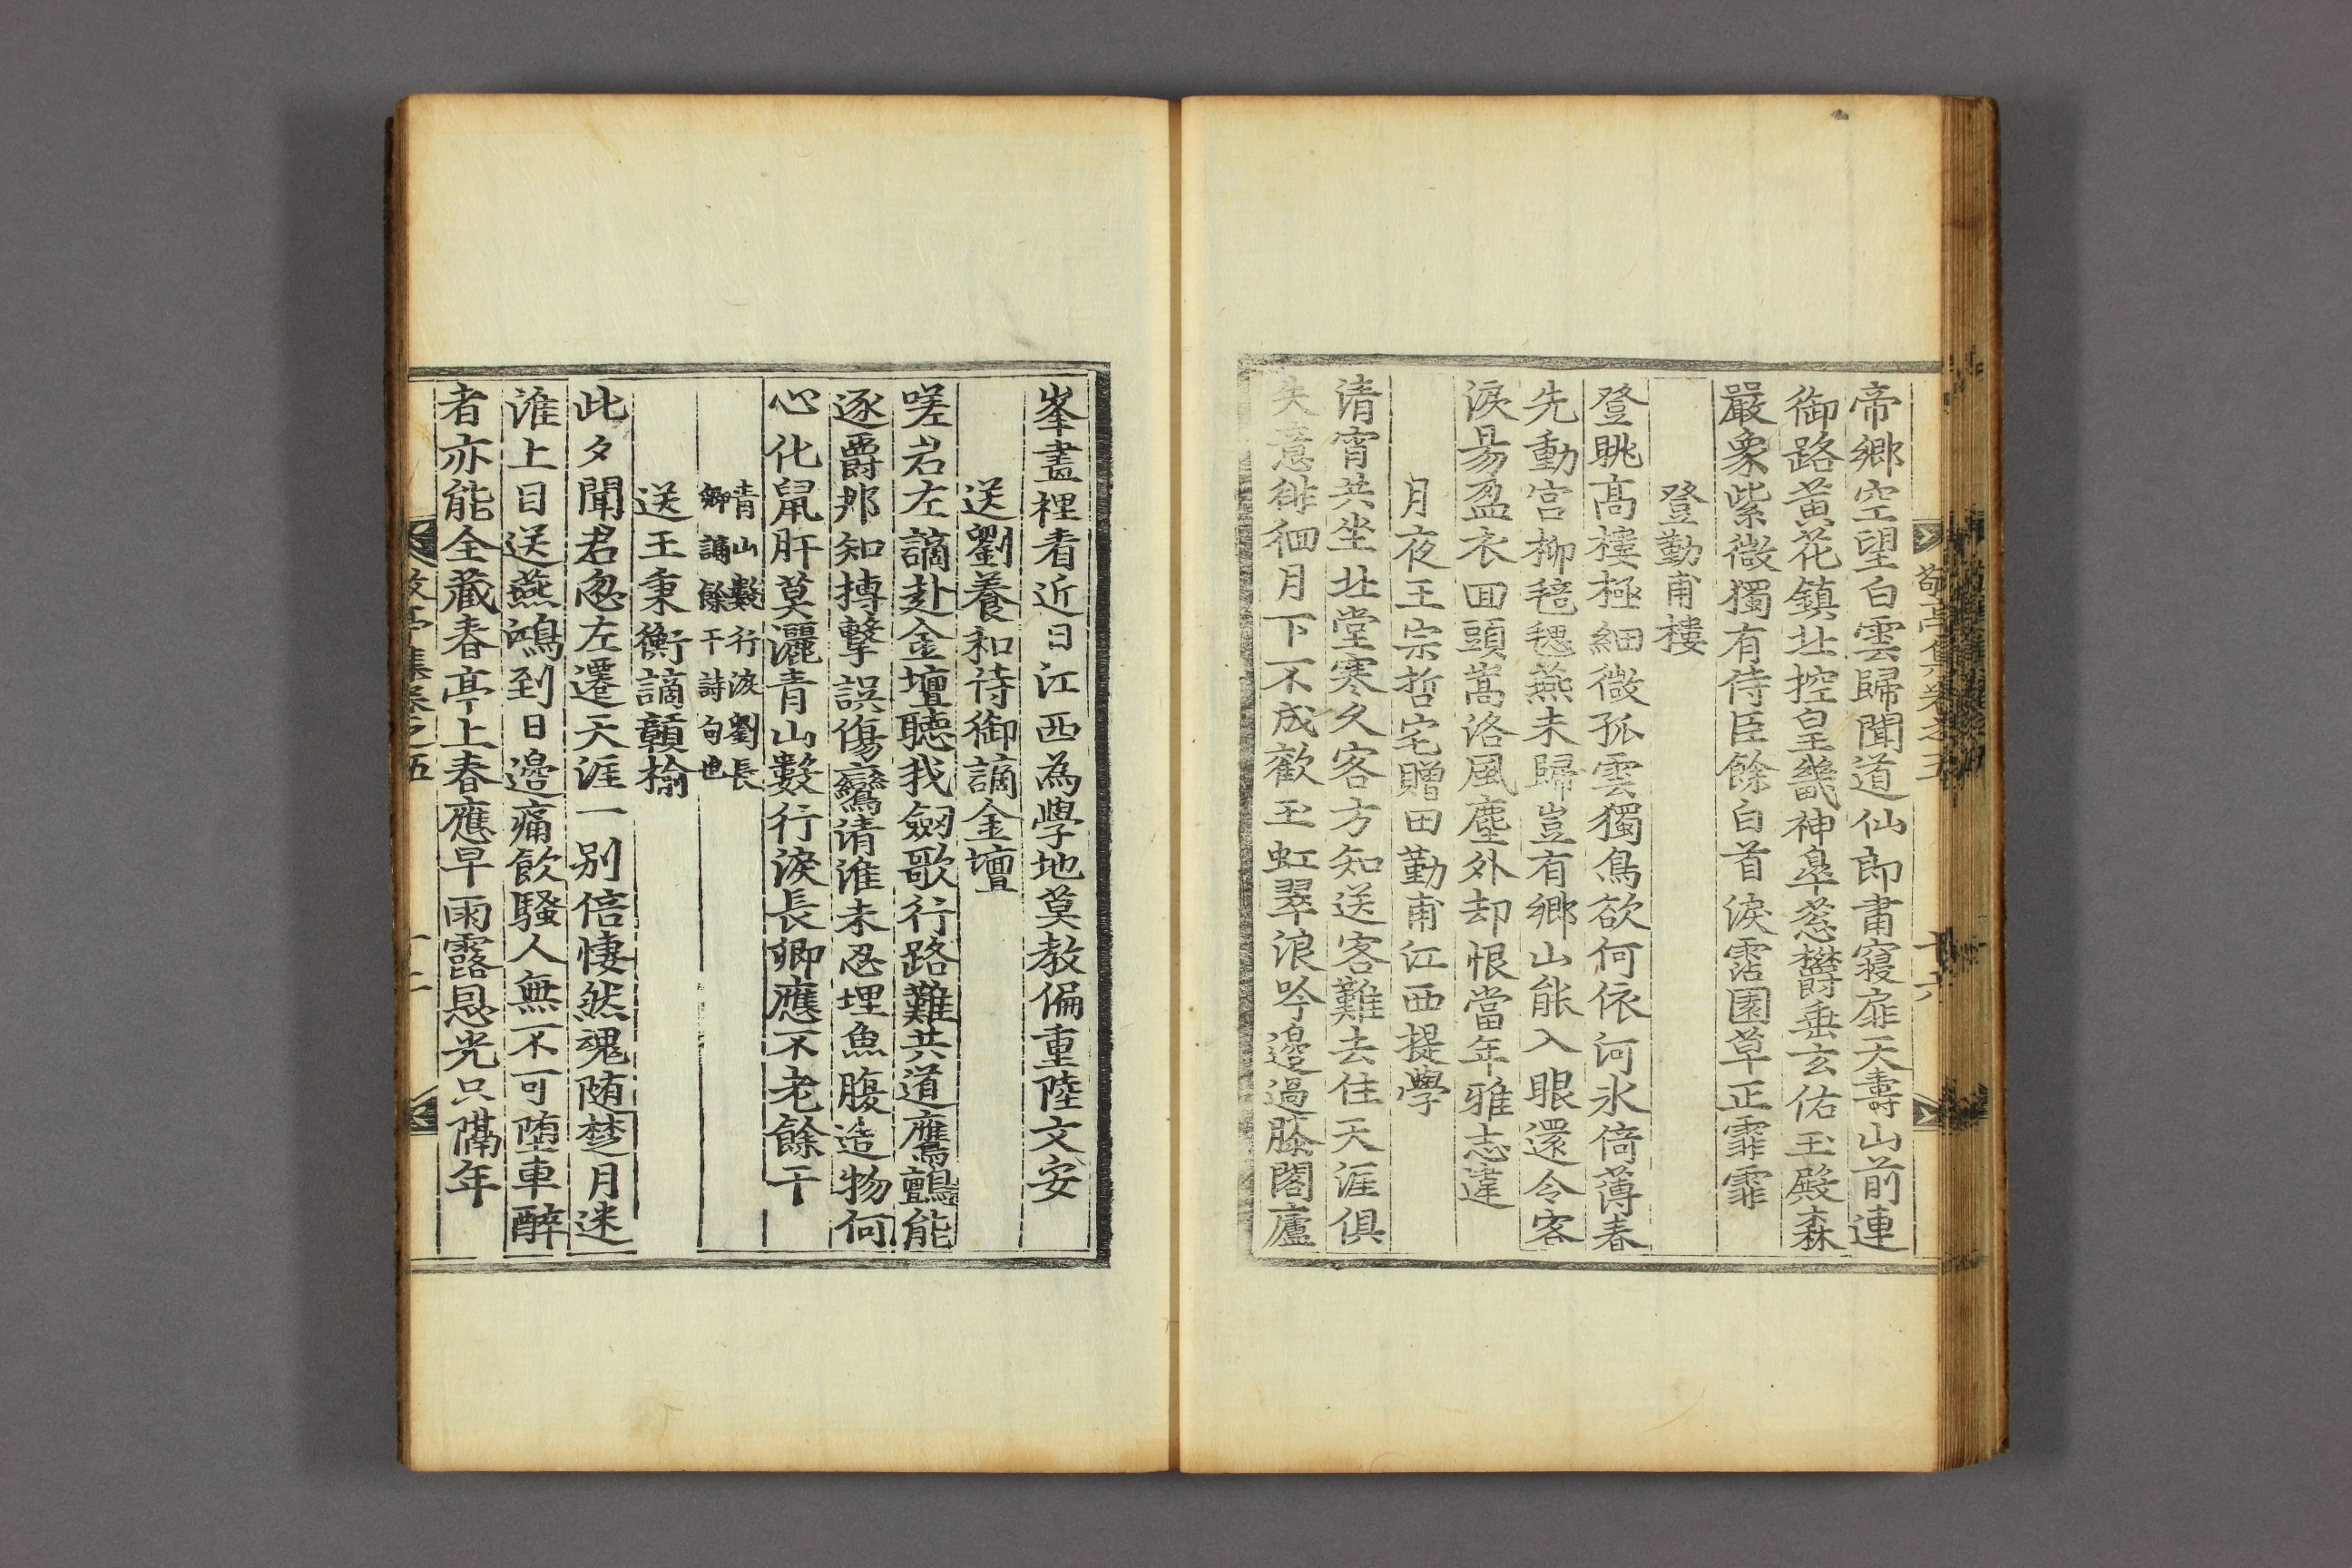 帝鄉空望白雲歸聞道仙郎肅寢扉天壽山前連
御路黃花鎮北控皇畿神皐葱欝垂玄佑玉殿森
嚴象紫微獨有侍臣餘白首淚霑園草正霏霏
登勤甫樓
登眺高樓極細微孤雲獨鳥欲何依河氷倚薄春
先動宮柳毿毸燕未歸豈有鄉山能入眼還令客
淚易盈衣回頭嵩洛風塵外却恨當年雅志違
月夜王宗哲宅贈田勤甫江西提學
清宵共坐北堂寒久客方知送客難去住天涯俱
失意徘徊月下不成歡玉虹翠浪吟邊過滕閣廬
峯畫裡看近日江西為學地莫教偏重陸文安
送劉養和侍御謫金壇
嗟君左謫赴金壇聽我劒歌行路難共道鷹鸇能
逐爵那知搏擊誤傷鸞清淮未忍埋魚腹造物何
心化鼠肝莫灑青山數行淚長卿應不老餘干
青山數行淚劉長
卿謫餘干詩句也
送王秉衡謫贛榆
此夕聞君忽左遷天涯一別倍悽然魂随楚月迷
淮上目送燕鴻到日邊痛飲騷人無不可堕車醉
者亦能全藏春亭上春應早雨露恩光只隔年